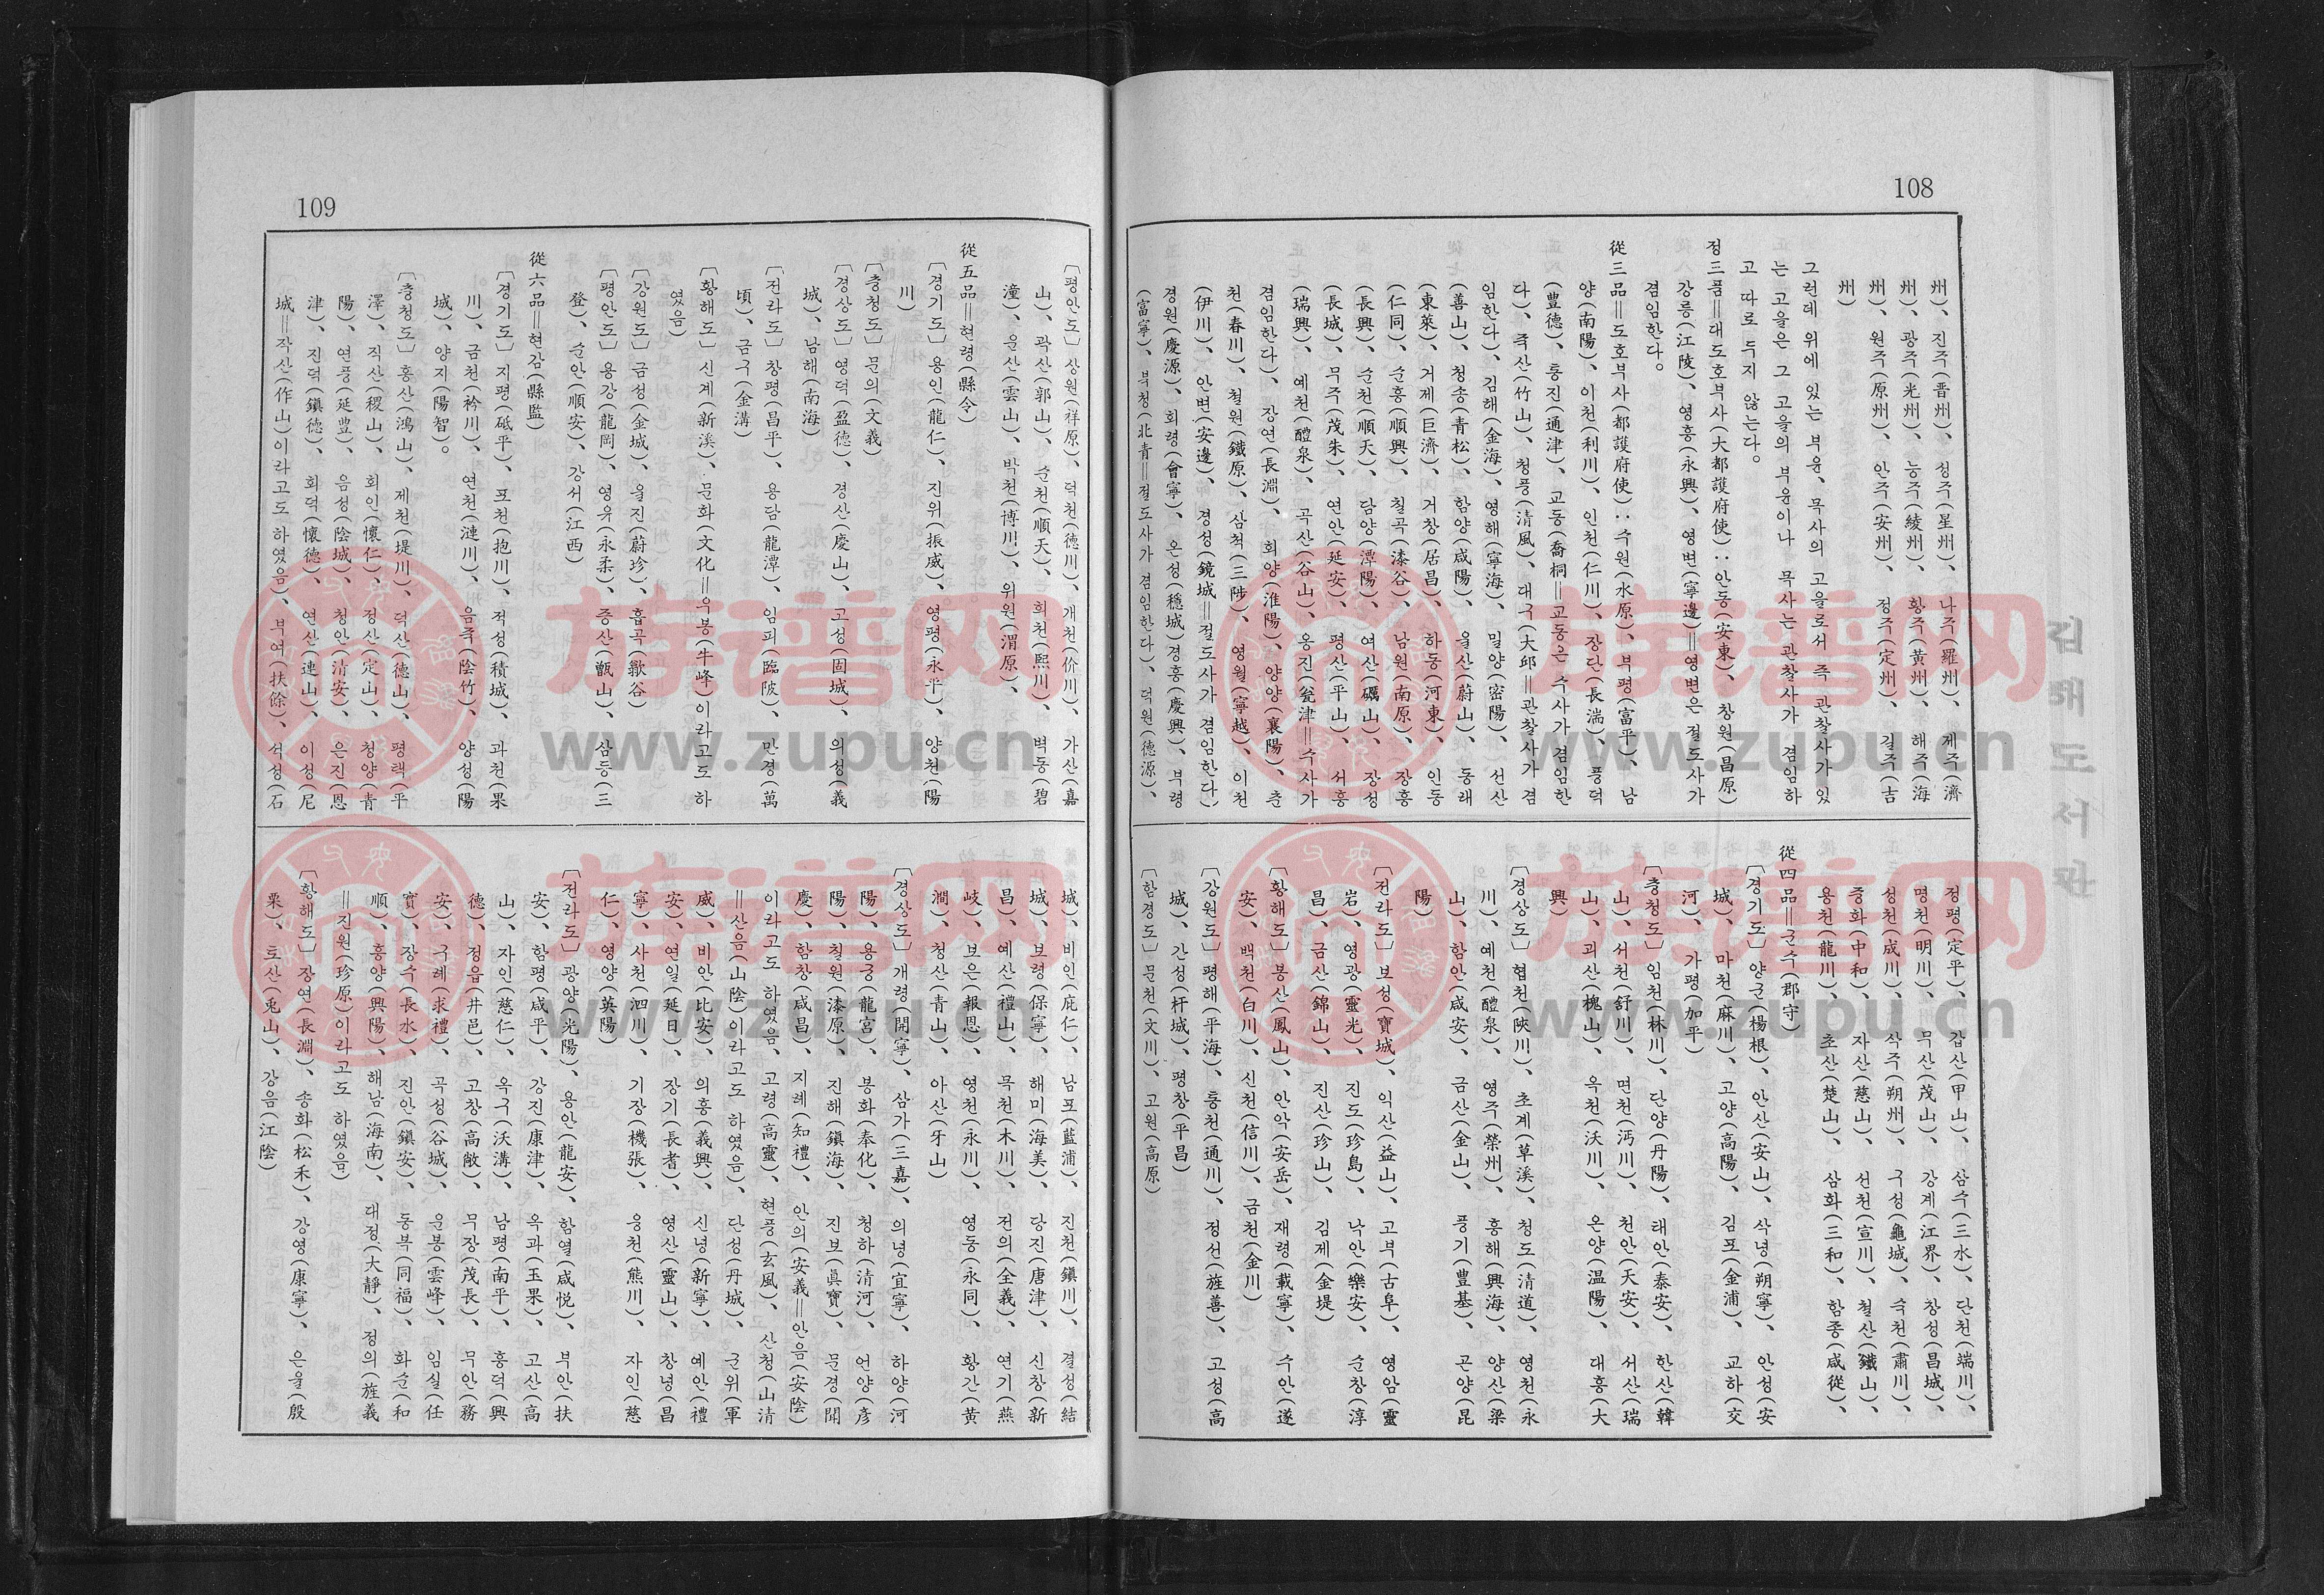 108
州)、진주(晋州)、성주(星州)、나주(羅州)、제주(濟
州)、광주(光州)、능주(綾州)、황주(黃州)、해주(海
州)、원주(原州)、안주(安州)、정주(定州)、길주(吉
州)
그런데 위에 있는 부윤、목사의 고을로서 즉 관찰사가 있
는 고을은 그 고을의 부윤이나 목사는 관찰사가 겸임하
고 따로 두지 않는다。
정三품＝대도호부사(大都護府使)‥안동(安東)、창원(昌原)
강릉(江陵)、영흥(永興)、영변(寧邊)＝영변은 절도사가
겸임한다。
從三品＝도호부사(都護府使)‥수원(水原)、부평(富平)、남
양(南陽)、이천(利川)、인천(仁川)、장단(長湍)、풍덕
(豊德)、통진(通津)、교동(喬桐＝교동은 수사가 겸임한
다)、죽산(竹山)、청풍(清風)、대구(大邱＝관찰사가 겸
임한다)、김해(金海)、영해(寧海)、밀양(密陽)、선산
(善山)、청송(青松)、함양(咸陽)、울산(蔚山)、동래
(東萊)、거제(巨濟)、거창(居昌)、하동(河東)、인동
(仁同)、순흥(順興)、칠곡(漆谷)、남원(南原)、장흥
(長興)、순천(順天)、담양(潭陽)、여산(礪山)、장성
(長城)、무주(茂朱)、연안(延安)、평산(平山)、서흥
(瑞興)、예천(醴泉)、곡산(谷山)、옹진(瓮津＝수사가
겸임한다)、장연(長淵)、회양(淮陽)、양양(襄陽)、춘
천(春川)、철원(鐵原)、삼척(三陟)、영월(寧越)、이천
(伊川)、안변(安邊)、경성(鏡城＝절도사가 겸임한다)
경원(慶源)、회령(會寧)、온성(穩城)경흥(慶興)、부령
(富寧)、북청(北青＝절도사가 겸임한다)、덕원(德源)、
정평(定平)、갑산(甲山)、삼수(三水)、단천(端川)、
명천(明川)、무산(茂山)、강계(江界)、창성(昌城)、
성천(成川)、삭주(朔州)、구성(龜城)、숙천(肅川)、
중화(中和)、자산(慈山)、선천(宣川)、철산(鐵山)、
용천(龍川)、초산(楚山)、삼화(三和)、함종(咸從)、
從四品＝군수(郡守)
〔경기도〕양근(楊根)、안산(安山)、삭녕(朔寧)、안성(安
城)、마천(麻川)、고양(高陽)、김포(金浦)、교하(交
河)、가평(加平)
〔충청도〕임천(林川)、단양(丹陽)、태안(泰安)、한산(韓
山)、서천(舒川)、면천(沔川)、천안(天安)、서산(瑞
山)、괴산(槐山)、옥천(沃川)、온양(温陽)、대흥(大
興)
〔경상도〕협천(陜川)、초계(草溪)、청도(清道)、영천(永
川)、예천(醴泉)、영주(榮州)、흥해(興海)、양산(梁
山)、함안(咸安)、금산(金山)、풍기(豊基)、곤양(昆
陽)
〔전라도〕보성(寶城)、익산(益山)、고부(古阜)、영암(靈
岩)、영광(靈光)、진도(珍島)、낙안(樂安)、순창(淳
昌)、금산(錦山)、진산(珍山)、김제(金堤)
〔황해도〕봉산(鳳山)、안악(安岳)、재령(載寧)、수안(遂
安)、백천(白川)、신천(信川)、금천(金川)
〔강원도〕평해(平海)、통천(通川)、정선(旌善)、고성(高
城)、간성(杆城)、평창(平昌)
〔함경도〕문천(文川)、고원(高原)
김해도서관
109
〔평안도〕상원(祥原)、덕천(德川)、개천(价川)、가산(嘉
山)、곽산(郭山)、순천(順天)、희천(熙川)、벽동(碧
潼)、운산(雲山)、박천(博川)、위원(渭原)、
從五品＝현령(縣令)
〔경기도〕용인(龍仁)、진위(振威)、영평(永平)、양천(陽
川)
〔충청도〕문의(文義)
〔경상도〕영덕(盈德)、경산(慶山)、고성(固城)、의성(義
城)、남해(南海)
〔전라도〕창평(昌平)、용담(龍潭)、임피(臨陂)、만경(萬
頃)、금구(金溝)
〔황해도〕신계(新溪)、문화(文化＝우봉(牛峰)이라고도 하
였음)
〔강원도〕금성(金城)、울진(蔚珍)、흡곡(歙谷)
〔평안도〕용강(龍岡)、영유(永柔)、증산(甑山)、삼등(三
登)、순안(順安)、강서(江西)
從六品＝현감(縣監)
〔경기도〕지평(砥平)、포천(抱川)、적성(積城)、과천(果
川)、금천(衿川)、연천(漣川)、음죽(陰竹)、양성(陽
城)、양지(陽智)。
〔충청도〕홍산(鴻山)、제천(堤川)、덕산(德山)、평택(平
澤)、직산(稷山)、회인(懷仁)、정산(定山)、청양(青
陽)、연풍(延豊)、음성(陰城)、청안(清安)、은진(恩
津)、진덕(鎭德)、회덕(懷德)、연산(連山)、이성(尼
城＝작산(作山)이라고도 하였음)、부여(扶餘)、석성(石
城)、비인(庇仁)、남포(藍浦)、진천(鎭川)、결성(結
城)、보령(保寧)、해미(海美)、당진(唐津)、신창(新
昌)、예산(禮山)、목천(木川)、전의(全義)、연기(燕
岐)、보은(報恩)、영천(永川)、영동(永同)、황간(黃
澗)、청산(青山)、아산(牙山)
〔경상도〕개령(開寧)、삼가(三嘉)、의녕(宜寧)、하양(河
陽)、용궁(龍宮)、봉화(奉化)、청하(清河)、언양(彦
陽)、칠원(漆原)、진해(鎭海)、진보(眞寶)、문경(聞
慶)、함창(咸昌)、지례(知禮)、안의(安義＝안음(安陰)
이라고도 하였음、고령(高靈)、현풍(玄風)、산청(山清
＝산음(山陰)이라고도 하였음)、단성(丹城)、군위(軍
威)、비안(比安)、의흥(義興)、신녕(新寧)、예안(禮
安)、연일(延日)、장기(長耆)、영산(靈山)、창녕(昌
寧)、사천(泗川)、기장(機張)、웅천(熊川)、자인(慈
仁)、영양(英陽)
〔전라도〕광양(光陽)、용안(龍安)、함열(咸悅)、부안(扶
安)、함평(咸平)、강진(康津)、옥과(玉果)、고산(高
山)、자인(慈仁)、옥구(沃溝)、남평(南平)、흥덕(興
德)、정읍(井邑)、고창(高敞)、무장(茂長)、무안(務
安)、구례(求禮)、곡성(谷城)、운봉(雲峰)、임실(任
實)、장수(長水)、진안(鎭安)、동복(同福)、화순(和
順)、흥양(興陽)、해남(海南)、대정(大靜)、정의(旌義
＝진원(珍原)이라고도 하였음)
〔황해도〕장연(長淵)、송화(松禾)、강영(康寧)、은율(殷
栗)、토산(兎山)、강음(江陰)
族谱网
www.zupu.cn
族谱网
www.zupu.cn
族谱网
www.zupu.cn
族谱网
www.zupu.cn